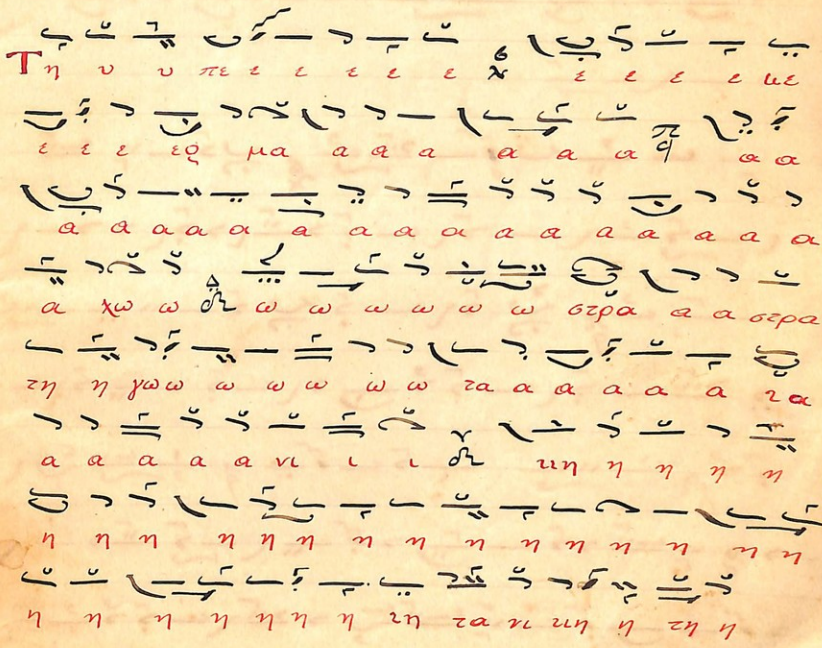 Τη υ υ πε ε ε ε ε ε ε ε ε ε κε
ε ε ε ερ μα α α α α α α α α
α α α α α α α α α α α α α α α α
α χω ω ω ω ω ω ω ω στρα α α στρα
τη η γω ω ω ω ω ω ω τα α α α α α τα
α α α α α νι ι ι κη η η η η
η η η η η η η η η η η η η η η
η η η η η η η τη τα νι κη η τη η